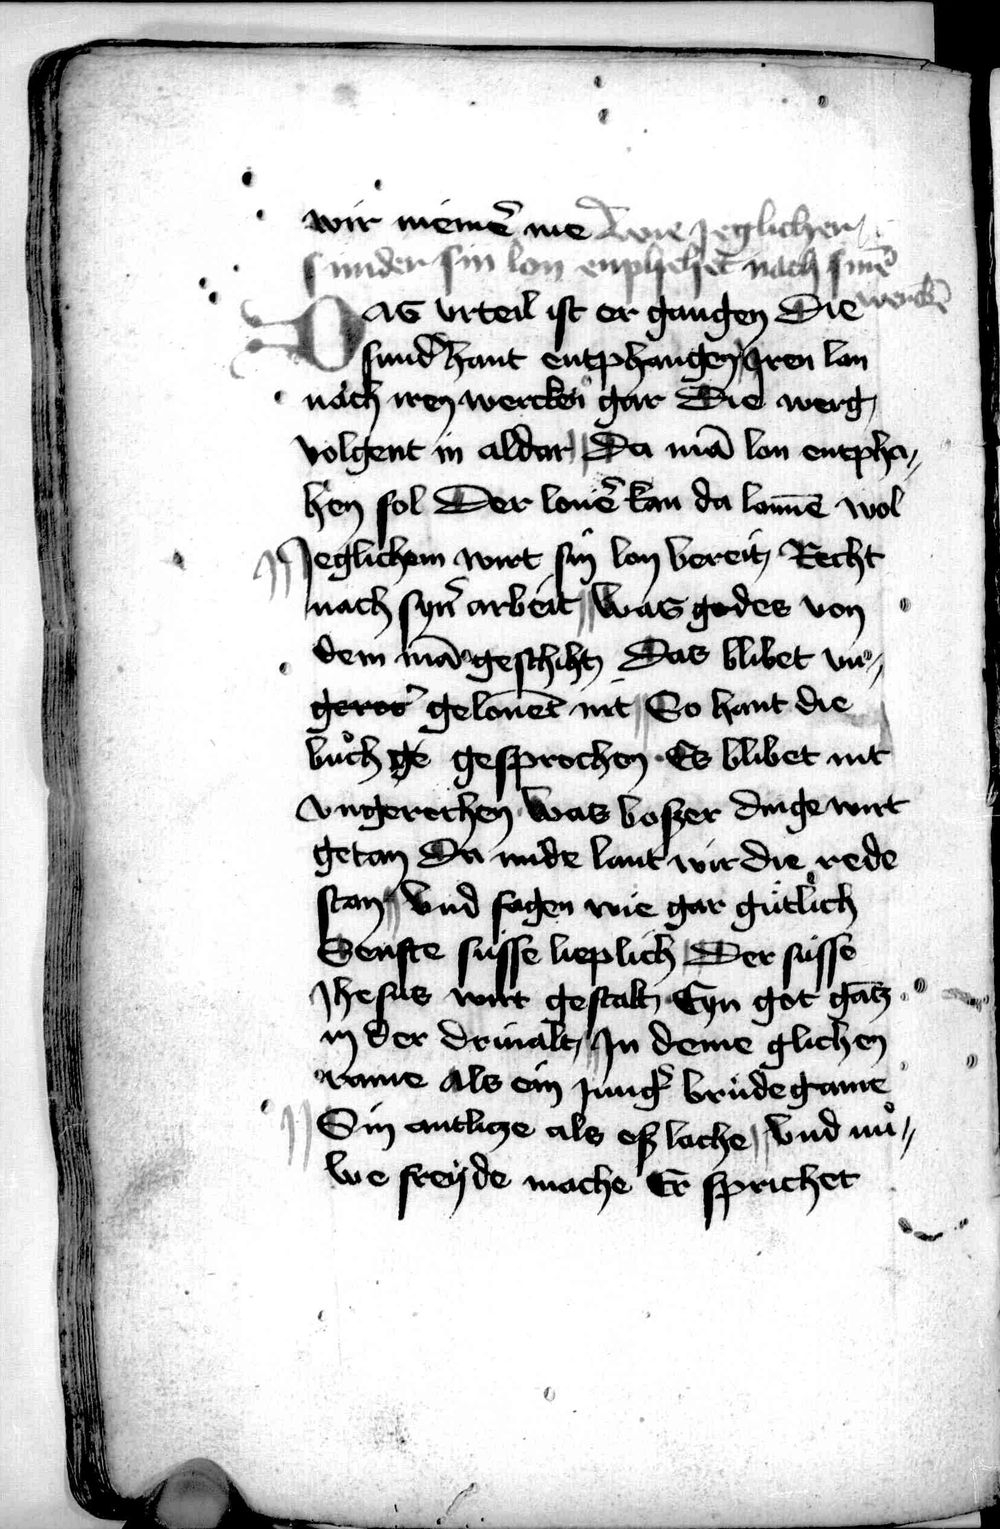 wir niem̄er me Wie Jeglicher
sunder sin lon enphehet nach sinē
werckē
DAS vrteil ist er gangen Die
sund' hant entphangen Jren lon
nach iren wercken gar Die werg
volgent in aldar Da mā lon entpha„
hen sol Der lonēr kan da lonnē wol
Jeglichem wirt sin lon bereit Recht
nach syn̄ arbeit Was godes von
dem mā geschiht Das blibet vn„
geroc' gelonet nit So hant die
bůch ge gesprochen Es blibet nit
vngerochen Was boßer dinge wirt
getan Da mide lant wir die rede
stan Vnd sagen wie gar gütlich
Senfte süsse lieplich Der süsse
Jhesus wirt gestalt Eyn got gātz
in der drinalt In deme glichen
rame Als ein jung' brüdegame
Sin antlitze als eß lache Vnd nů„
we freyde mache Er sprichet